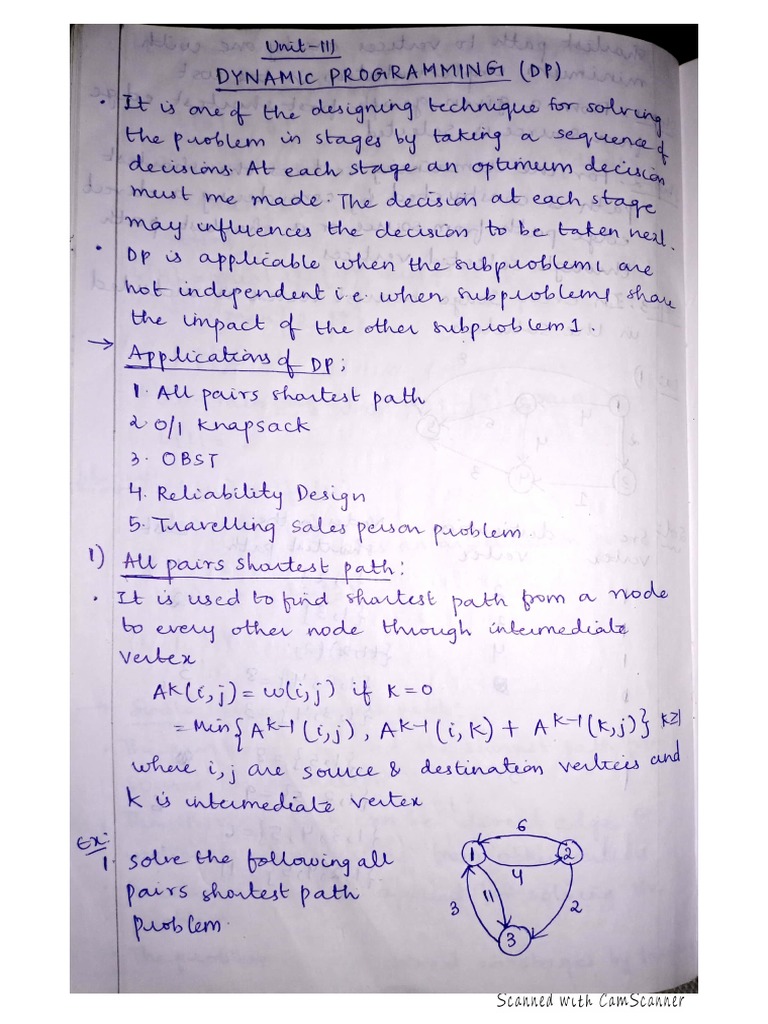 Unit-III
DYNAMIC PROGRAMMING (DP)
• It is one of the designing technique for solving
the problem in stages by taking a sequence of
decisions. At each stage an optimum decision
must me made. The decision at each stage
may influences the decision to be taken next.
• DP is applicable when the subproblems are
not independent i.e. when subproblems share
the impact of the other subproblems.
→ Applications of DP:
1. All pairs shortest path
2 0/1 Knapsack
3. OBST
4. Reliability Design
5. Travelling sales person problem.
1) All pairs shortest path:
• It is used to find shortest path from a node
to every other node through intermediate
vertex
A^k(i,j) = w(i,j) if k=0
= Min{A^k-1(i,j), A^k-1(i,k) + A^k-1(k,j)} k≥1
where i,j are source & destination vertices and
k is intermediate vertex
Ex:
1. Solve the following all
pairs shortest path
problem.
6
1 2
4
3 11 2
3
Scanned with CamScanner